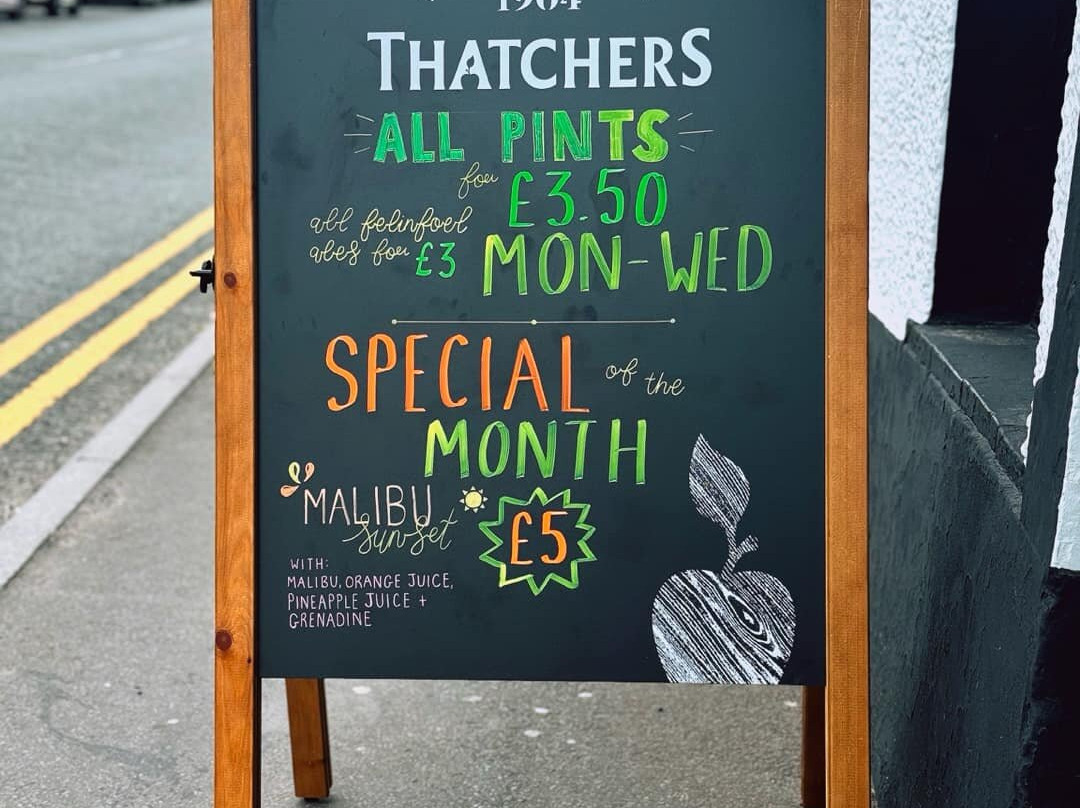 1904
THATCHERS
ALL PINTS
for £3.50
all felinfoel
ales for £3
MON-WED
SPECIAL of the
MONTH
MALIBU
sunset
£5
WITH:
MALIBU, ORANGE JUICE,
PINEAPPLE JUICE +
GRENADINE